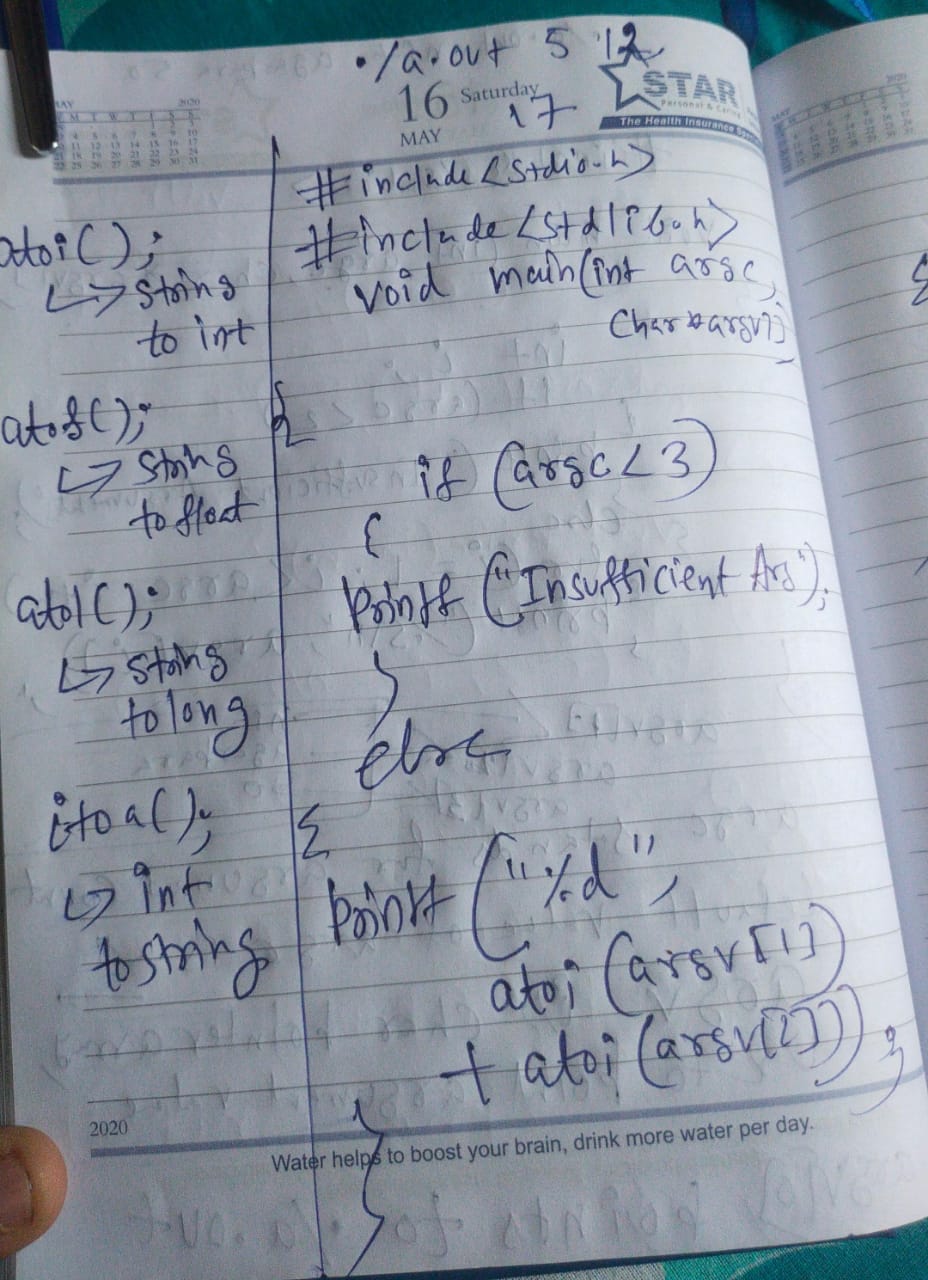 ./a.out 5 12
16 Saturday
17
MAY
STAR
Personal & Caring
The Health Insurance
MAY 2020
atoi();
↳ string
to int
atof();
↳ string
to float
atol();
↳ string
to long
itoa();
↳ int
to string
#include <stdio.h>
#include <stdlib.h>
void main(int argc,
char *argv[])
{
if (argc < 3)
{
printf ("Insufficient Arg");
}
else
{
printf ("%d",
atoi (argv[1])
+ atoi (argv[2]));
}
}
2020
Water helps to boost your brain, drink more water per day.